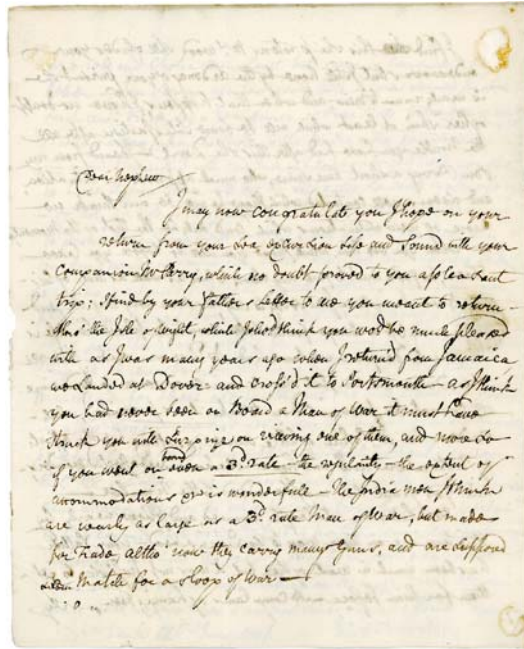 Dear Nephew
I may now congratulate you I hope on your
return from your Sea excursion Safe and Sound with your
Companion Mr Parry, which no doubt proved to you a pleasant
trip; I find by your Fathers Letter to me you meant to return
thro' the Isle of Wight, which I shod think you wod be much pleased
with as I was many years ago when I returned from Jamaica
we Landed at Dover and cross'd it to Portsmouth — as I think
you had never been on Board a Man of War it must have
Struck you with Surprize on viewing one of them, and more so
if you went on board even a 3d rate — the regularity — the extent of
accommodations &c is wonderfull — the India men I think
are nearly as large as a 3d rate Man of War, but made
for Trade, altho' now they carry many Guns, and are Supposed
Match for a Sloop of War —